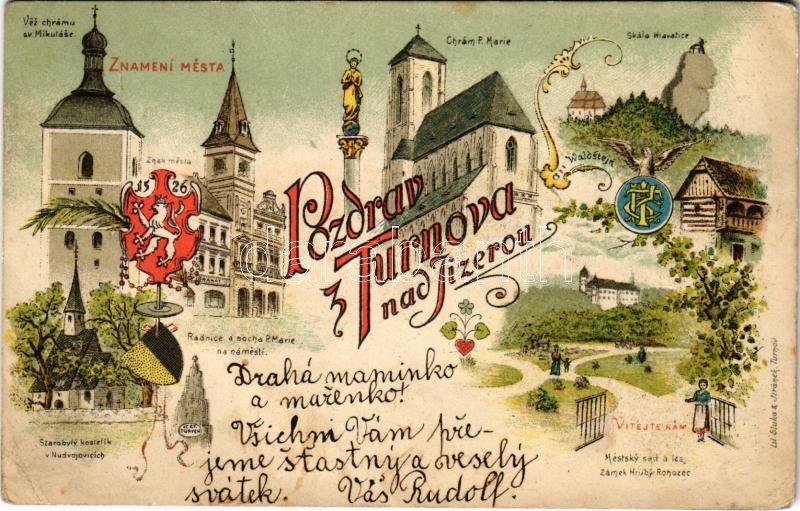 Věž chrámu
sv. Mikuláše.
ZNAMENÍ MĚSTA
Znak města
1526
Chrám P. Marie
Skála Hlavatice
Waldštejn
Pozdrav
z Turnova
nad Jizerou
darabanth
Radnice a socha P. Marie
na náměstí.
Starobylý kostelík
v Nudvojovicích
Drahá maminko
a mařenko!
Všichni Vám pře-
jeme štastný a veselý
svátek. Váš Rudolf.
VÍTEJTE NÁM
Městský sad a les
Zámek Hrubý Rohozec
Lit. Sluka & Jiránek, Turnov